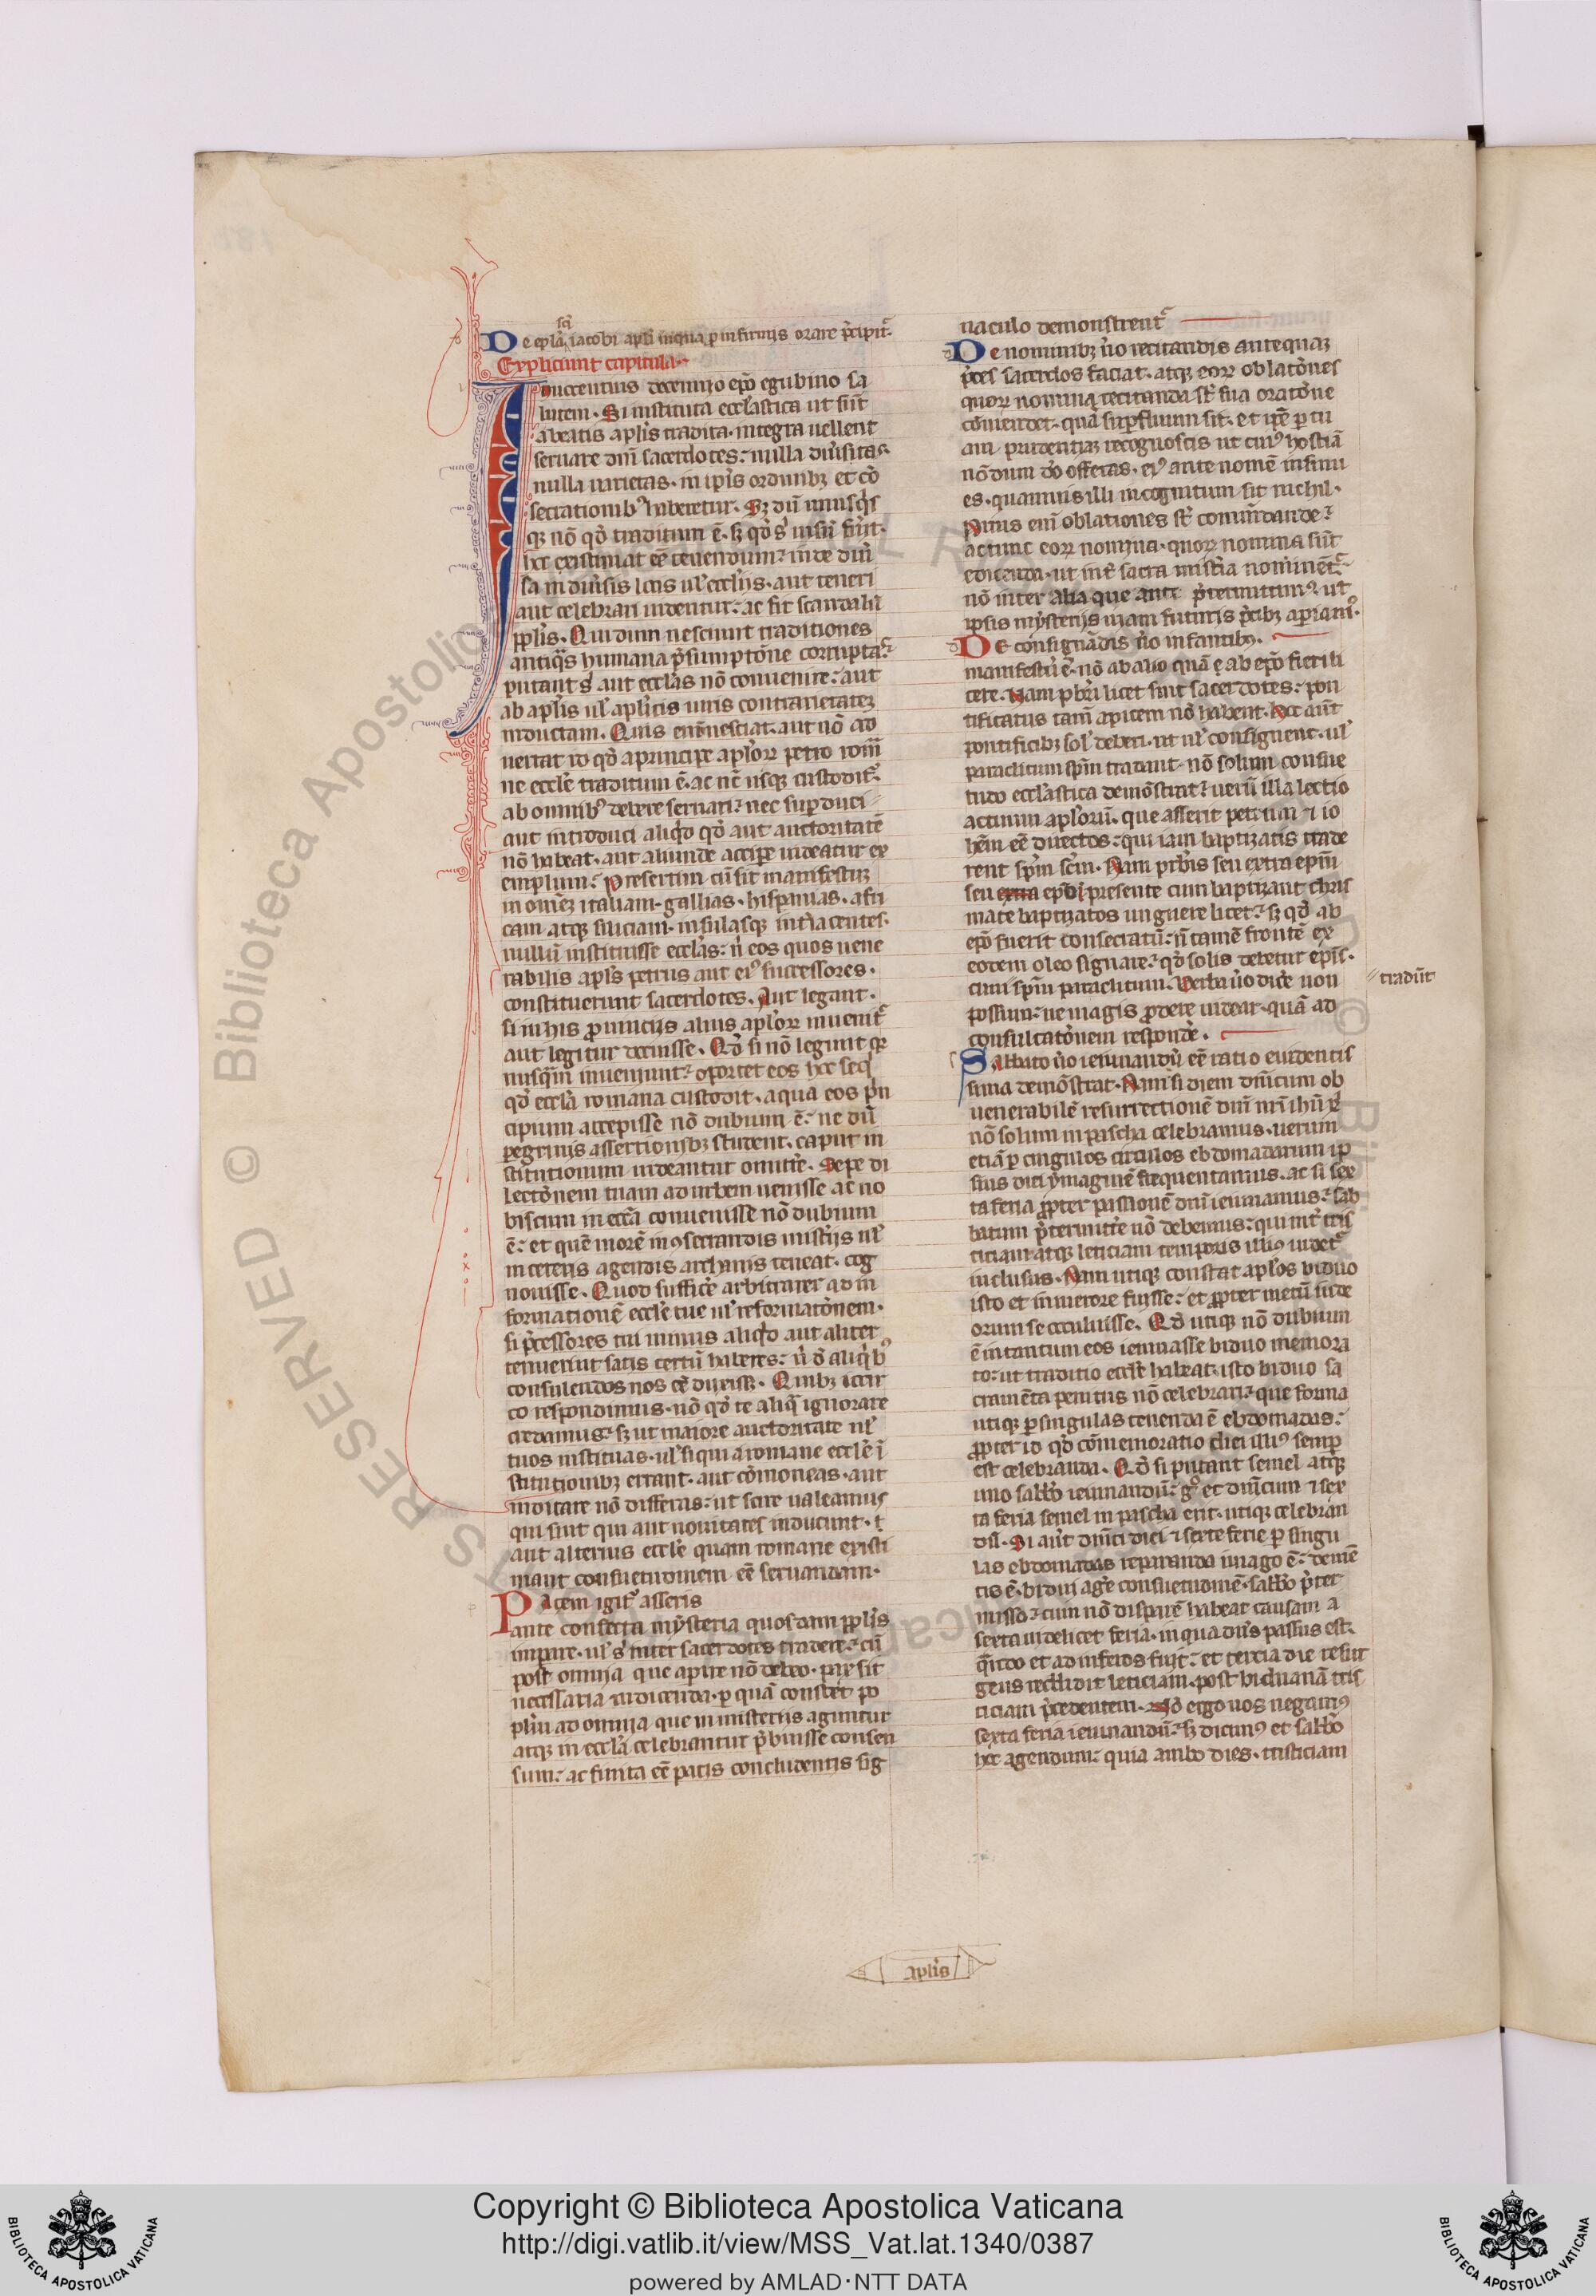 De epła iacobi apłi inqua p infirmis orare p̄cipit᷑.
scī
Expliciunt capitula
Innccentius decennio ep̄o egubino sa
lutem. Si instituta eccłastica ut sūt
a beatis apłis tradita. integra uellent
seruare dn̄i sacerdotes: nulla diu̾sitas.
nulla uarietas. in ip̄is ordinibꝫ et cō
secrationibꝰ haberetur. Sꝫ dū unusq̾s
qꝫ nō qđ traditum ē. sꝫ qđ s̾ uisū fūit.
hoc existimat eē tenendum: inde diu̾
sa in diu̾sis locis uł eccłiis. aut teneri
aut celebrari uidentur: ac fit scandalū
ppłis. Qui dum nesciunt traditiones
antiq̾s humana p̄sumptōne corruptas
putant s̾ aut eccłas nō conuenire: aut
ab apłis uł apłicis uiris contrarietatez
inductam. Quis enī nesciat. aut nō ad
uertat id qđ a principe apłoꝝ petro rom̄
ne eccłe traditum ē. ac nc̄ usqꝫ custodit᷑.
ab omnibꝰ debere seruari: nec sup̱duci
aut introduci aliqđ qđ aut auctoritatē
nō habeat. aut aliunde accipe uideatur ex
emplum: Presertim cū sit manifestuz
in omēz italiam. gallias. hispanias. afri
cam atqꝫ siliciam. insulasqꝫ int̾iacentes.
nullū instituisse eccłas: n̄ eos quos uene
rabilis apłs petrus aut eiꝰ successores.
constituerunt sacerdotes. Aut legant.
si in his prouinciis alius apłoꝝ inuenit᷑
aut legitur docuisse. Qđ si nō legunt qꝛ
nusq̄m inueniunt: oportet eos hoc seq̾
qđ eccła romana custodit. a qua eos p̾n
cipium accepisse nō dubium ē: ne dū
pegrinis assertionibꝫ student. caput in
stitutionum uideantur omitt̾e. Sepe di
lectōnem tuam ad urbem uenisse ac no
biscum in eccła conuenisse nō dubium
ē: et quē morē in ꝯsecrandis mist̾iis uł
in ceteris agendis archanis teneat. cog
nouisse. Quod suffic̾e arbitrarer ad in
formationē eccłe tue uł reformatōnem.
si p̄cessores tui minus aliqđ aut aliter
tenuerint satis certū haberes: n̄ đ aliq̾bꝰ
consulendos nos eē dixissꝫ. Quibꝫ idcir
co respondimus. nō qđ te aliq̄ ignorare
credamus: sꝫ ut maiore auctoritate uł
tuos instituas. uł si qui a romane eccłe ī
stitutionibꝫ errant. aut cōmoneas. aut
indicare nō differas: ut scire ualeamus
qui sint qui aut nouitates inducunt. t
aut alterius eccłe quam romane existi
mant consuetudinem eē seruandam.
Pacem igit᷑ asseris
ante confecta mẏsteria quosdam ppłis
inpare. uł s̾ inter sacerdotes tradere: cū
post omnia que aperire nō debeo. pax sit
necessaria indicenda. p quā constet po
płm ad omnia que in misteriis aguntur
atqꝫ in eccła celebrantur p̄buisse consen
sum: ac finita eē pacis concludentis sig
naculo demonstrent᷑
De nominibꝫ ůo recitandis antequaꝫ
p̄ces sacerdos faciat. atqꝫ eoꝝ oblatōnes
quoꝝ nomina recitanda st̄ sua oratōne
cōmendet. quā sup̱fluum sit. et ip̄e p tu
am prudentiaꝫ recognoscis ut cuiꝰ hostiā
nōdum đo offeras. eiꝰ ante nomē insinu
es. quamuis illi incognitum sit nichil.
Prius enī oblationes st̄ comm̄dande:
ac tunc eoꝝ nomina. quoꝝ nomina sūt
edicenda. ut int̾ sacra mist̾ia nominēt᷑
nō inter alia que ante p̄termittimꝰ. ut
ipsis mẏsteriis uiam futuris p̄cibꝫ apiamꝰ.
De consignādis ůo infantibꝰ.
manifestū ē. nō ab alio quā ab ep̄o fieri li
cere. Nam pbri licet sint sacerdotes: pon
tificatus tam̄ apicem nō habent. hoc aūt
pontificibꝫ sol̾ deberi. ut uł consignent. uł
paraclitum spm̄ tradant. nō solum consue
tudo eccłastica demōstrat: uerū illa lectio
actuum apłorū. que asserit petrum ⁊ io
hēm eē directos: qui iam baptizatis trade
rent spm̄ scm̄. Nam prbis seu extra epm̄
seu extra ep̄o presente cum baptizant chris
mate baptizatos unguere licet: sꝫ qđ ab
ep̄o fuerit consecratū: n̄ tamē frontē ex
eodem oleo signare: qđ solis debetur ep̄is.
cum spm̄ paraclitum. Verba ůo dic̾e non
tradūt
possum: ne magis prodere uidear. quā ad
consultatōnem respond̾e.
Sabbato ůo ieiunandū eē ratio euidentis
sima demōstrat. Nam si diem dn̄icum ob
uenerabilē resurrectionē dn̄i nr̄i ihū x̄
nō solum in pascha celebramus. uerum
etiā p cingulos circulos ebdomadarum ip
sius diei ẏmaginē frequentamus. ac si sex
ta feria ppter passionē dn̄i ieiunamus: sab
batum p̄termitt̾e nō debemus: qui int̾ tris
ticiam atqꝫ leticiam temporis illiꝰ uidet᷑
inclusus. Nam utiqꝫ constat apłos biduo
isto et in merore fuisse: et ppter metū iude
orum se occuluisse. Qđ utiqꝫ nō dubium
ē in tantum eos ieiunasse biduo memora
to: ut traditio eccłe habeat isto biduo sa
cramēta penitus nō celebrari: que forma
utiqꝫ p singulas tenenda ē ebdomadas:
ppter id qđ cōmemoratio diei illiꝰ semp
est celebranda. Qđ si putant semel atqꝫ
uno sabb̄o ieiunandū: gͦ et dn̄icum ⁊ sex
ta feria semel in pascha erit. utiqꝫ celebran
da. Si aūt dn̄ici diei ⁊ sexte ferie p singu
las ebdomadas reparanda imago ē: demē
tis ē. bidui ag̾e consuetudinē. sabb̄o p̄ter
misso: cum nō disparē habeat causam a
sexta uidelicet feria. in qua dn̄s passus est.
q̄ndo et ad inferos fuit: et tercia die resur
gens reddidit leticiam. post biduanā tris
ticiam p̄cedentem. Nō ergo nos negamꝰ
sexta feria ieiunandū: sꝫ dicimꝰ et sabb̄o
hoc agendum: quia ambo dies. tristiciam
apłis
Copyright © Biblioteca Apostolica Vaticana
http://digi.vatlib.it/view/MSS_Vat.lat.1340/0387
powered by AMLAD·NTT DATA